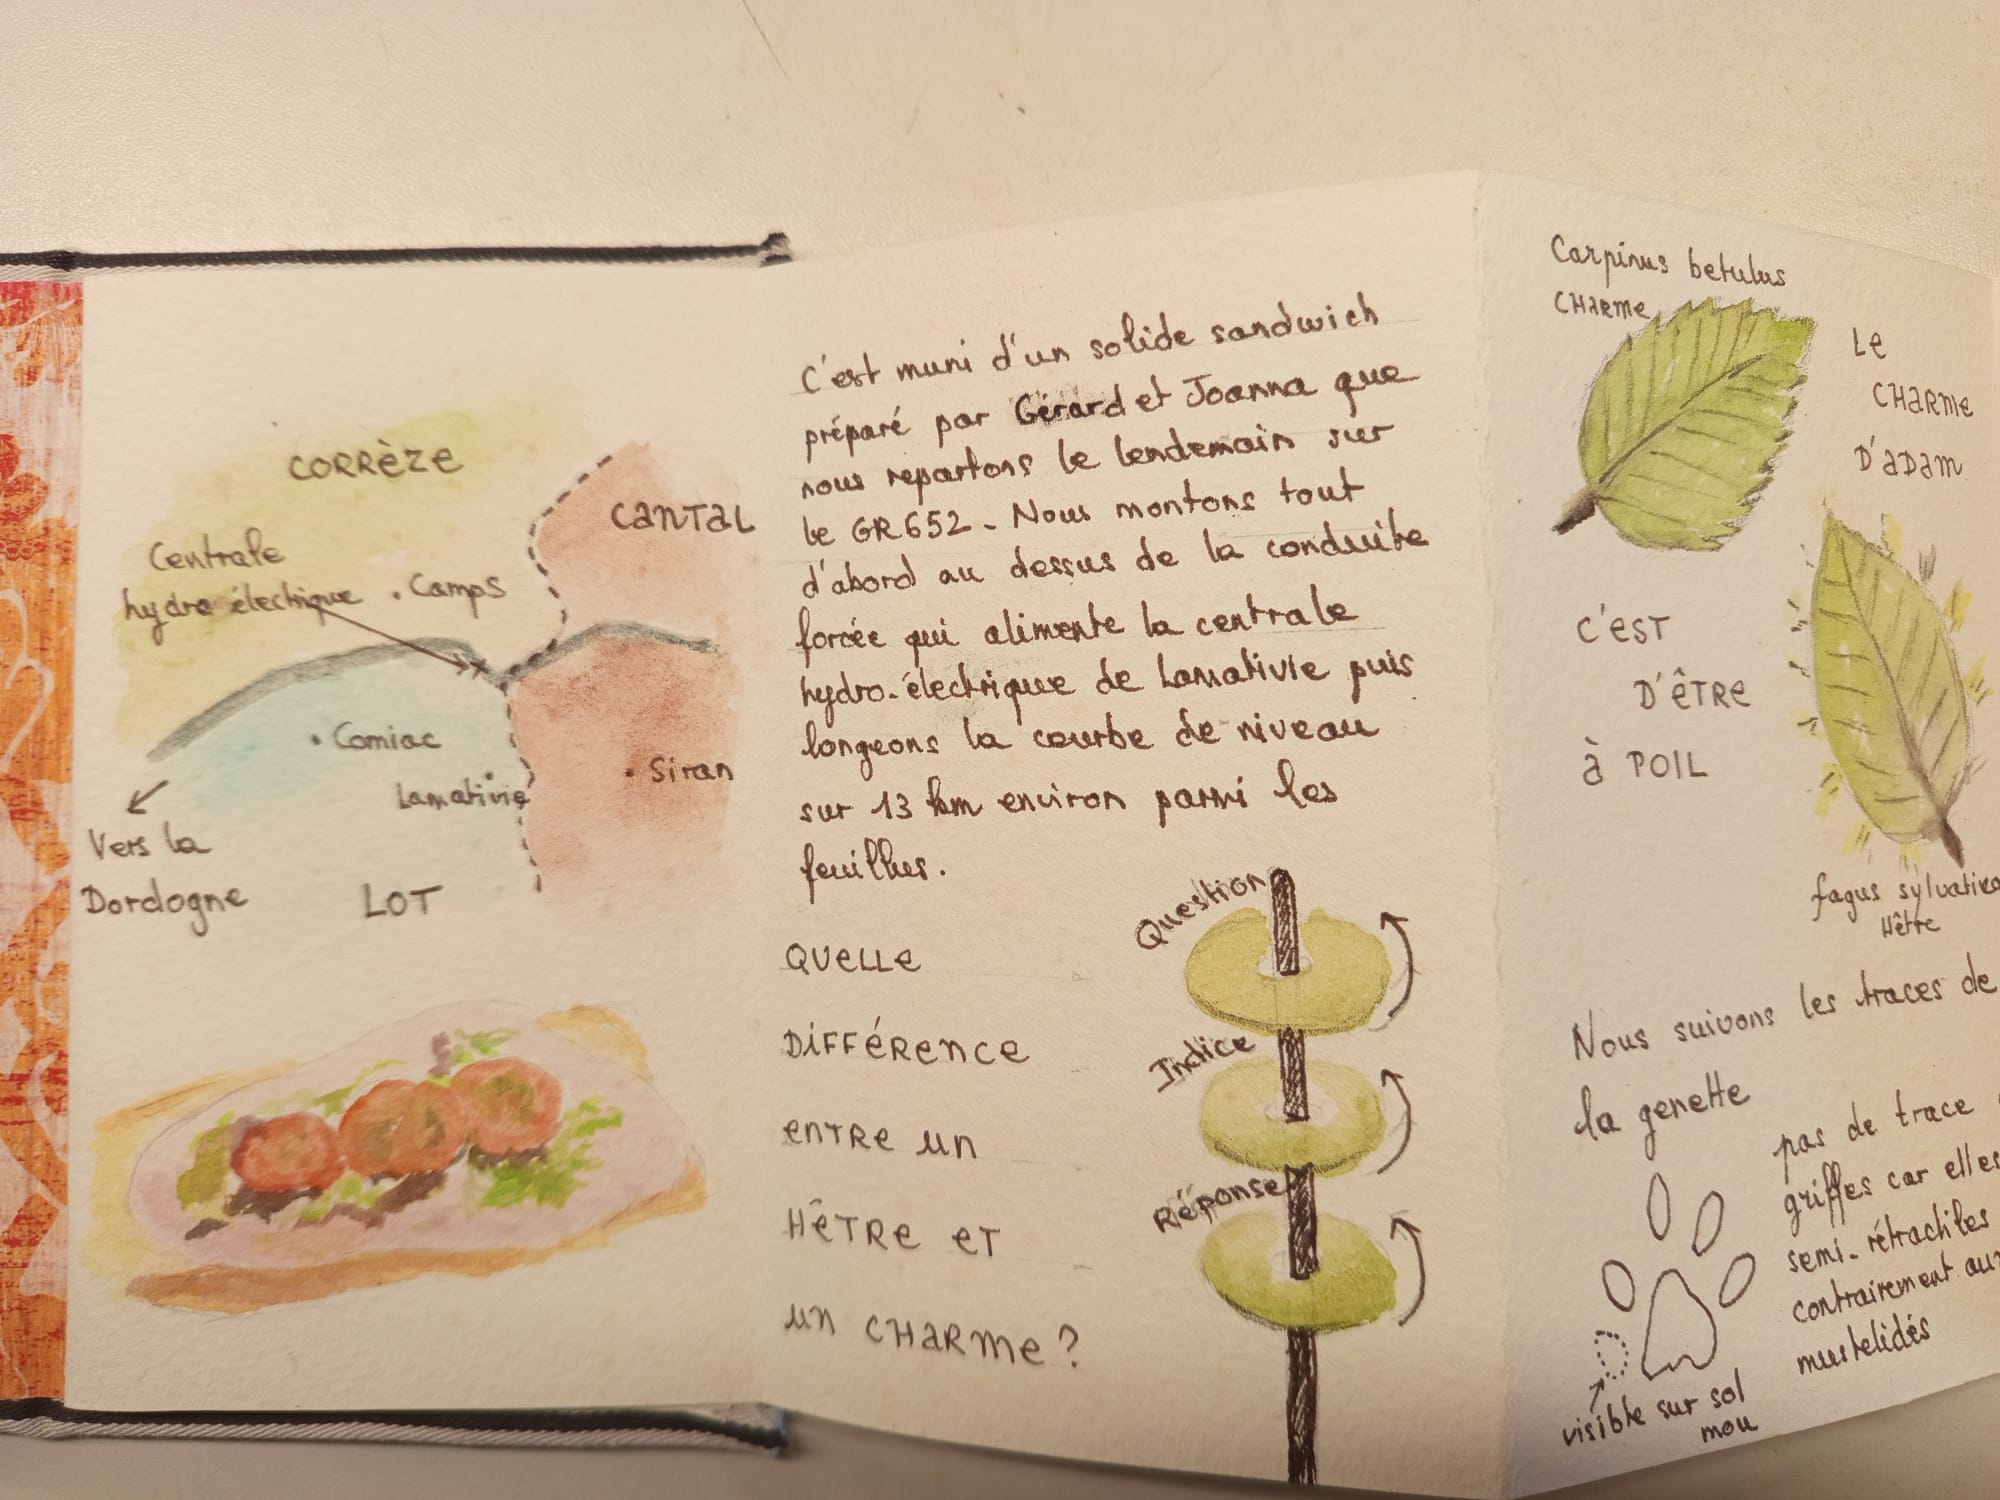 CORRÈZE
CANTAL
Centrale
hydro électrique
. Camps
. Comiac
Lamativie
. Siran
Vers la
Dordogne
LOT
C'est muni d'un solide sandwich
préparé par Gérard et Joanna que
nous repartons le lendemain sur
le GR652 - Nous montons tout
d'abord au dessus de la conduite
forcée qui alimente la centrale
hydro-électrique de Lamativie puis
longeons la courbe de niveau
sur 13 km environ parmi les
feuillus.
QUELLE
DIFFÉRENCE
ENTRE UN
HÊTRE ET
UN CHARME ?
Question
Indice
Réponse
Carpinus betulus
CHARME
LE
CHARME
D'ADAM
C'EST
D'ÊTRE
À POIL
fagus sylvatica
Hêtre
Nous suivons les traces de
la genette
pas de trace
griffes car elles
semi-rétractiles
contrairement aux
mustélidés
visible sur sol
mou